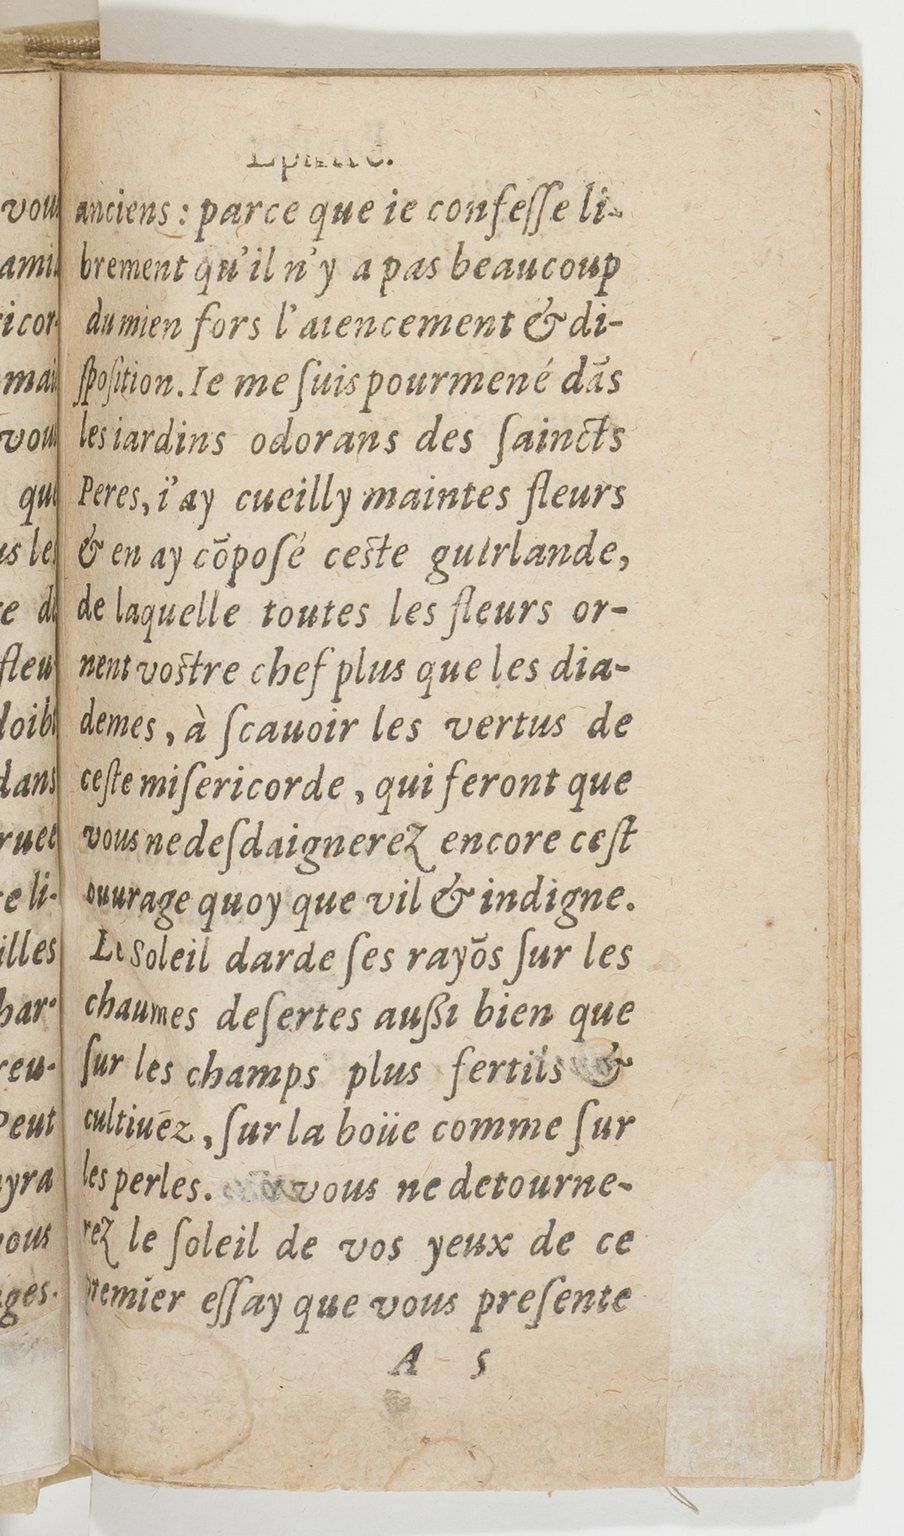 vou
ami
icor-
mai
vou
que
us les
re de
fleu
doibt
dans
ruet
re li-
illes
har-
reu-
Peut
yra
vous
ges.
Epistre.
anciens : parce que ie confeſſe li-
brement qu'il n'y a pas beaucoup
du mien fors l'aiencement & di-
ſpoſition. Ie me ſuis pourmené dãs
les iardins odorans des ſaincts
Peres, i'ay cueilly maintes fleurs
& en ay cõpoſé ceſte guirlande,
de laquelle toutes les fleurs or-
nent voſtre chef plus que les dia-
demes, à ſcauoir les vertus de
ceſte miſericorde, qui feront que
vous ne deſdaignerez encore ceſt
ouurage quoy que vil & indigne.
Le Soleil darde ſes rayõs ſur les
chaumes deſertes auſſi bien que
ſur les champs plus fertils &
cultiuéz, ſur la boüe comme ſur
les perles. vous ne detourne-
rez le ſoleil de vos yeux de ce
premier eſſay que vous preſente
A 5